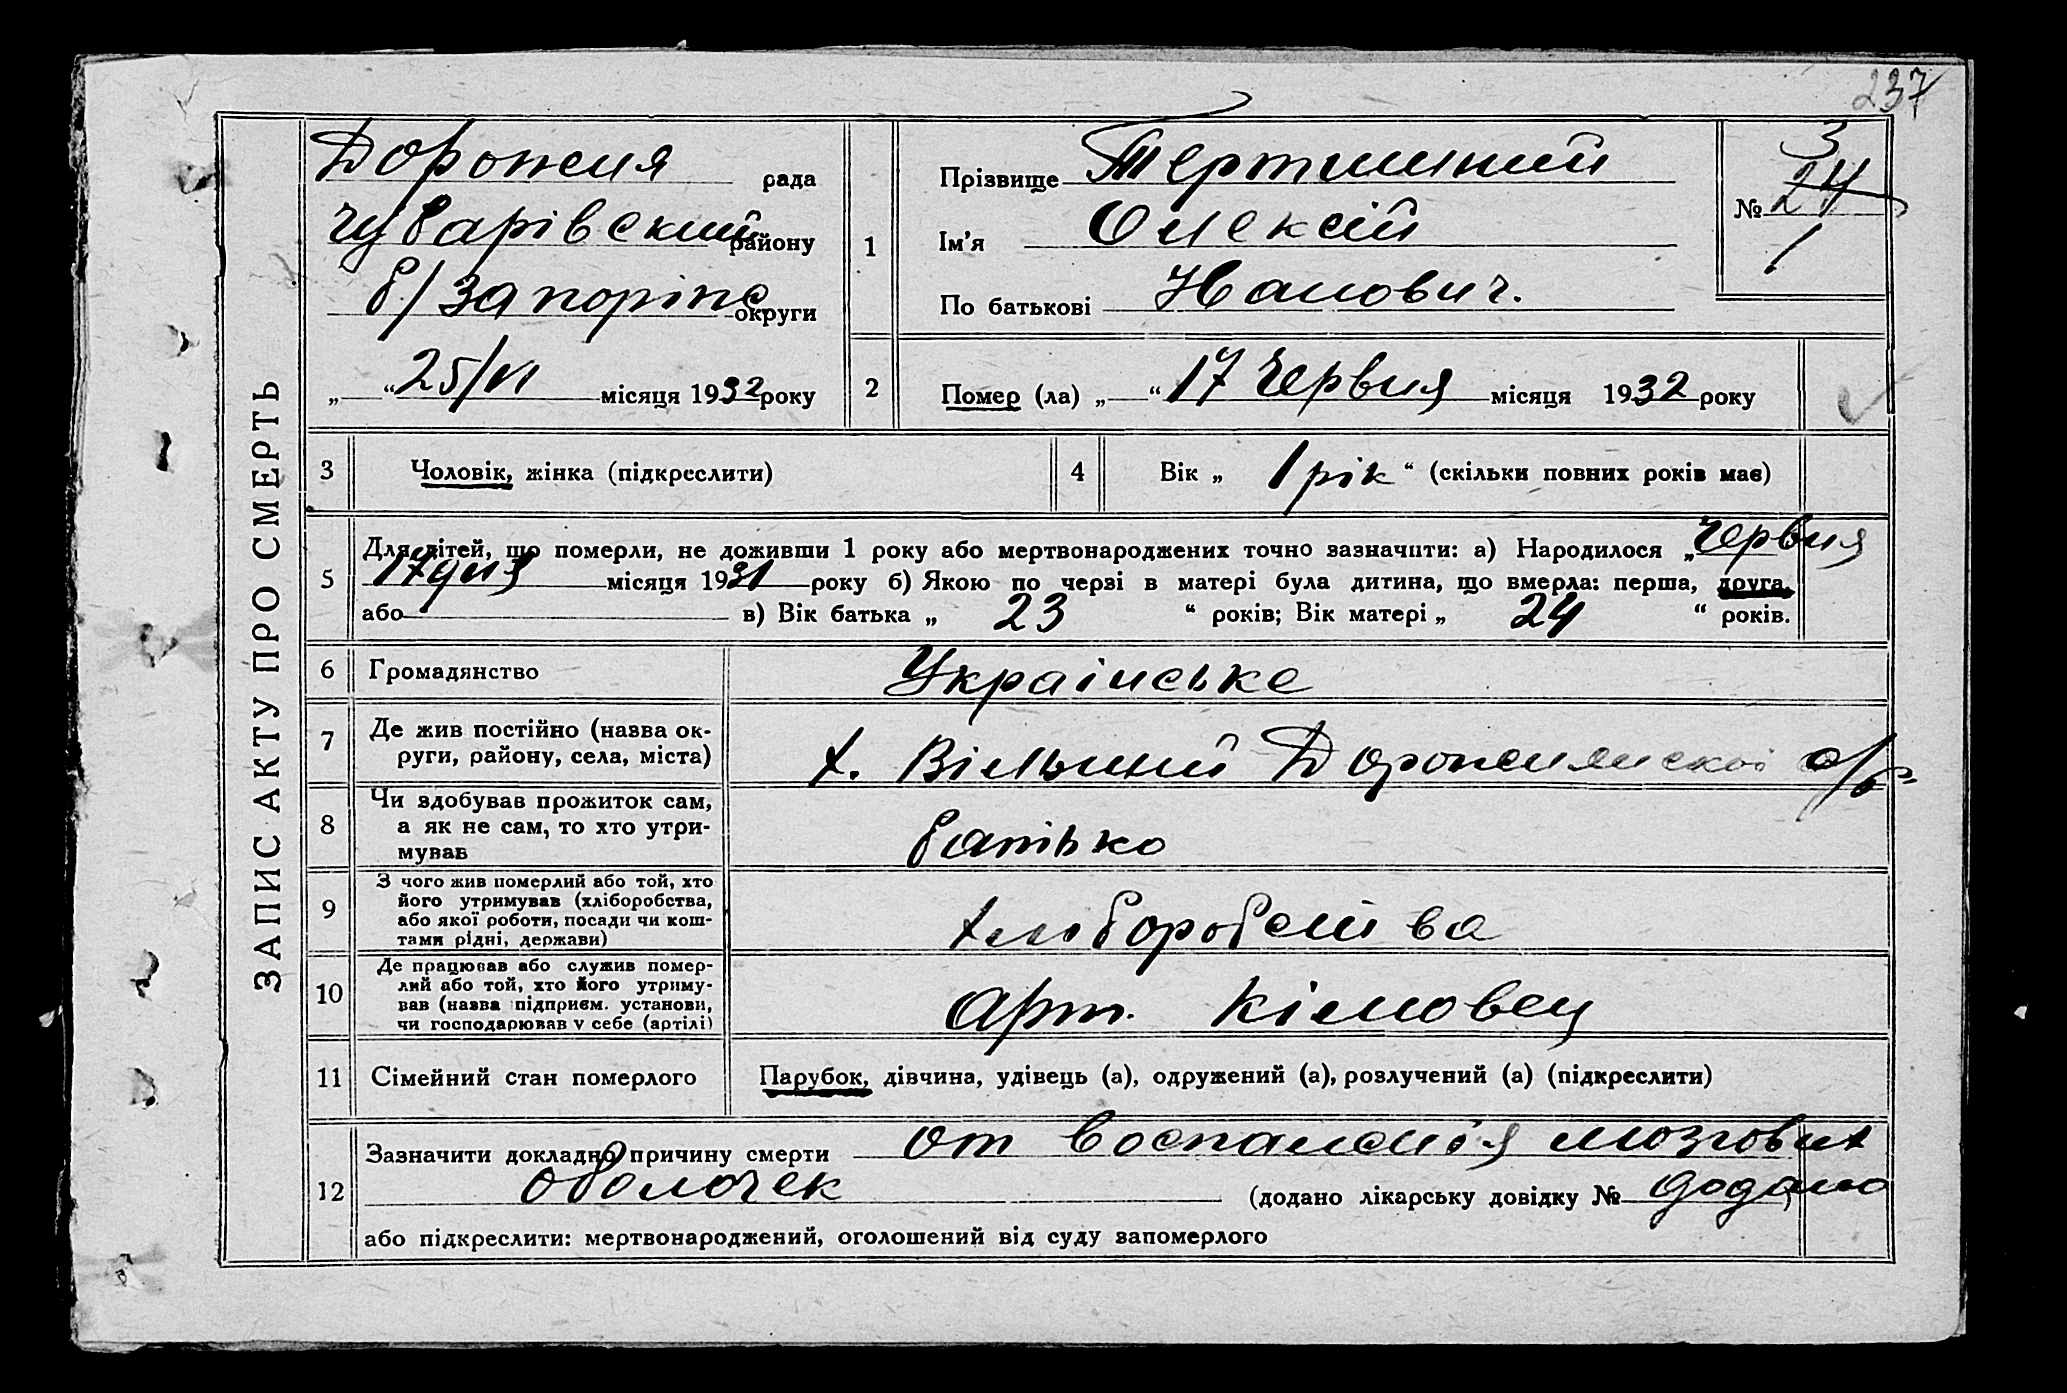 237
ЗАПИС АКТУ ПРО СМЕРТЬ
Дорожня рада
Чубарівський району
б/Запоріпс округи
„ “ 25/VI місяця 1932 року
1
Прізвище Тертишний
Ім’я Олексій
По батькові Іванович.
№ 3
24
1
2
Помер (ла) „ “ 17 Червня місяця 1932 року
3
Чоловік, жінка (підкреслити)
4
Вік „ 1 рік “ (скільки повних років має)
5
Для дітей, що померли, не доживши 1 року або мертвонароджених точно зазначити: а) Народилося „ Червня
17 дня місяця 1931 року б) Якою по черзі в матері була дитина, що вмерла: перша, друга,
або в) Вік батька „ 23 “ років; Вік матері „ 24 “ років.
6
Громадянство
Українське
7
Де жив постійно (назва ок-
руги, району, села, міста)
х. Вільний Дорожнянскоі с/р
8
Чи здобував прожиток сам,
а як не сам, то хто утри-
мував
батько
9
З чого жив померлий або той, хто
його утримував (хліборобства,
або якої роботи, посади чи кош-
тами рідні, держави)
хліборобства
10
Де працював або служив помер-
лий або той, хто його утриму-
вав (назва підприєм. установи,
чи господарював у себе (артілі)
Арт.
11
Сімейний стан померлого
Парубок, дівчина, удівець (а), одружений (а), розлучений (а) (підкреслити)
12
Зазначити докладно причину смерти от воспаленія мозгових
оболочек (додано лікарську довідку № додано)
або підкреслити: мертвонароджений, оголошений від суду запомерлого